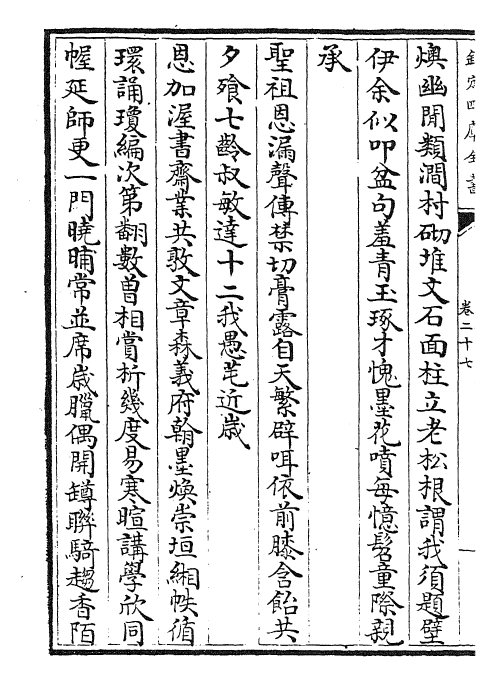 欽定四庫全書
卷二十七
燠幽閒類澗村砌堆文石面柱立老松根謂我須題壁
伊余似叩盆句羞青玉琢才愧墨花噴每憶髫童際親
承
聖祖恩漏聲傳禁切膏露自天繁辟咡依前膝含飴共
夕飱七齡叔敏達十二我愚芚近歳
恩加渥書齋業共敦文章森義府翰墨煥崇垣緗帙循
環誦瓊編次第翻數曽相賞析幾度易寒暄講學欣同
幄延師更一門曉晡常並席歳臘偶開罇聯騎趨香陌